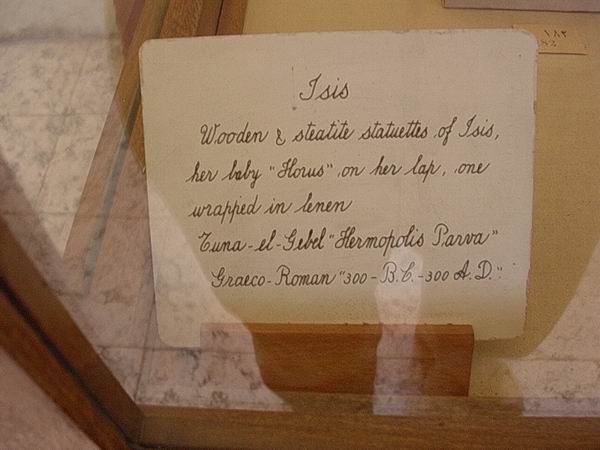 Isis
Wooden & steatite statuettes of Isis,
her baby "Horus" on her lap, one
wrapped in lenen
Tuna-el-Gebel "Hermopolis Parva"
Graeco-Roman "300-B.C.-300 A.D."
١٨٢
82